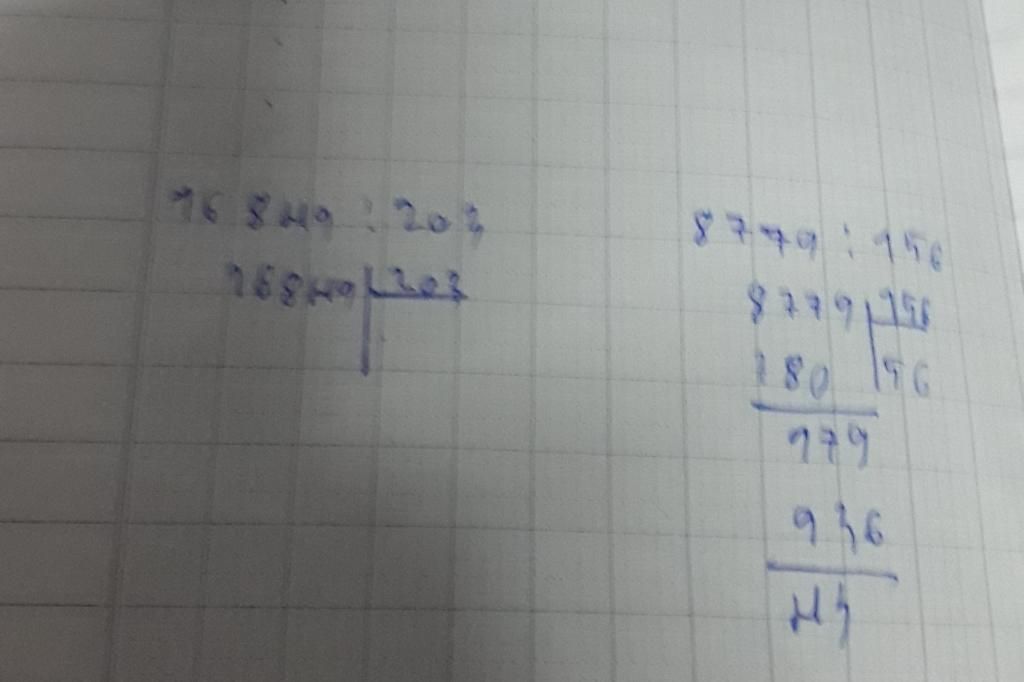 16849 : 203
16849 203
8779 : 156
8779 156
780 56
979
936
43